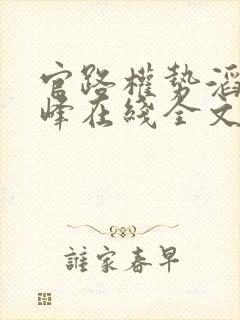 官路權勢滔
峰在綫全文
誰家春早